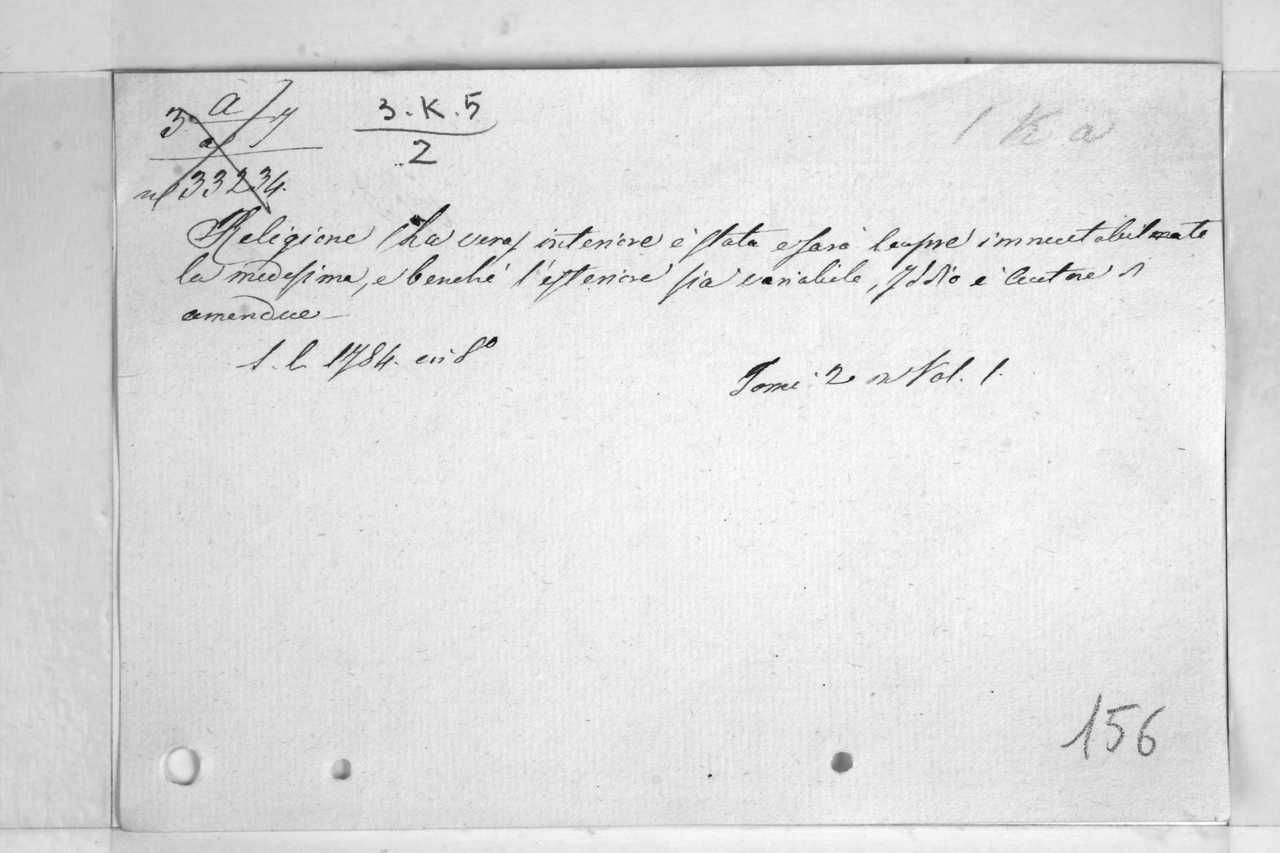 3 a 7
a
nº 33234.
3.K.5
2
1 K a
Religione (La vera) interiore è stata e sarà sempre immutabilmente
la medesima, e benché l'esteriore sia variabile, Iddio è autore di
amendue —
S. l. 1784. in 8º
Tomi 2 in Vol. 1.
156